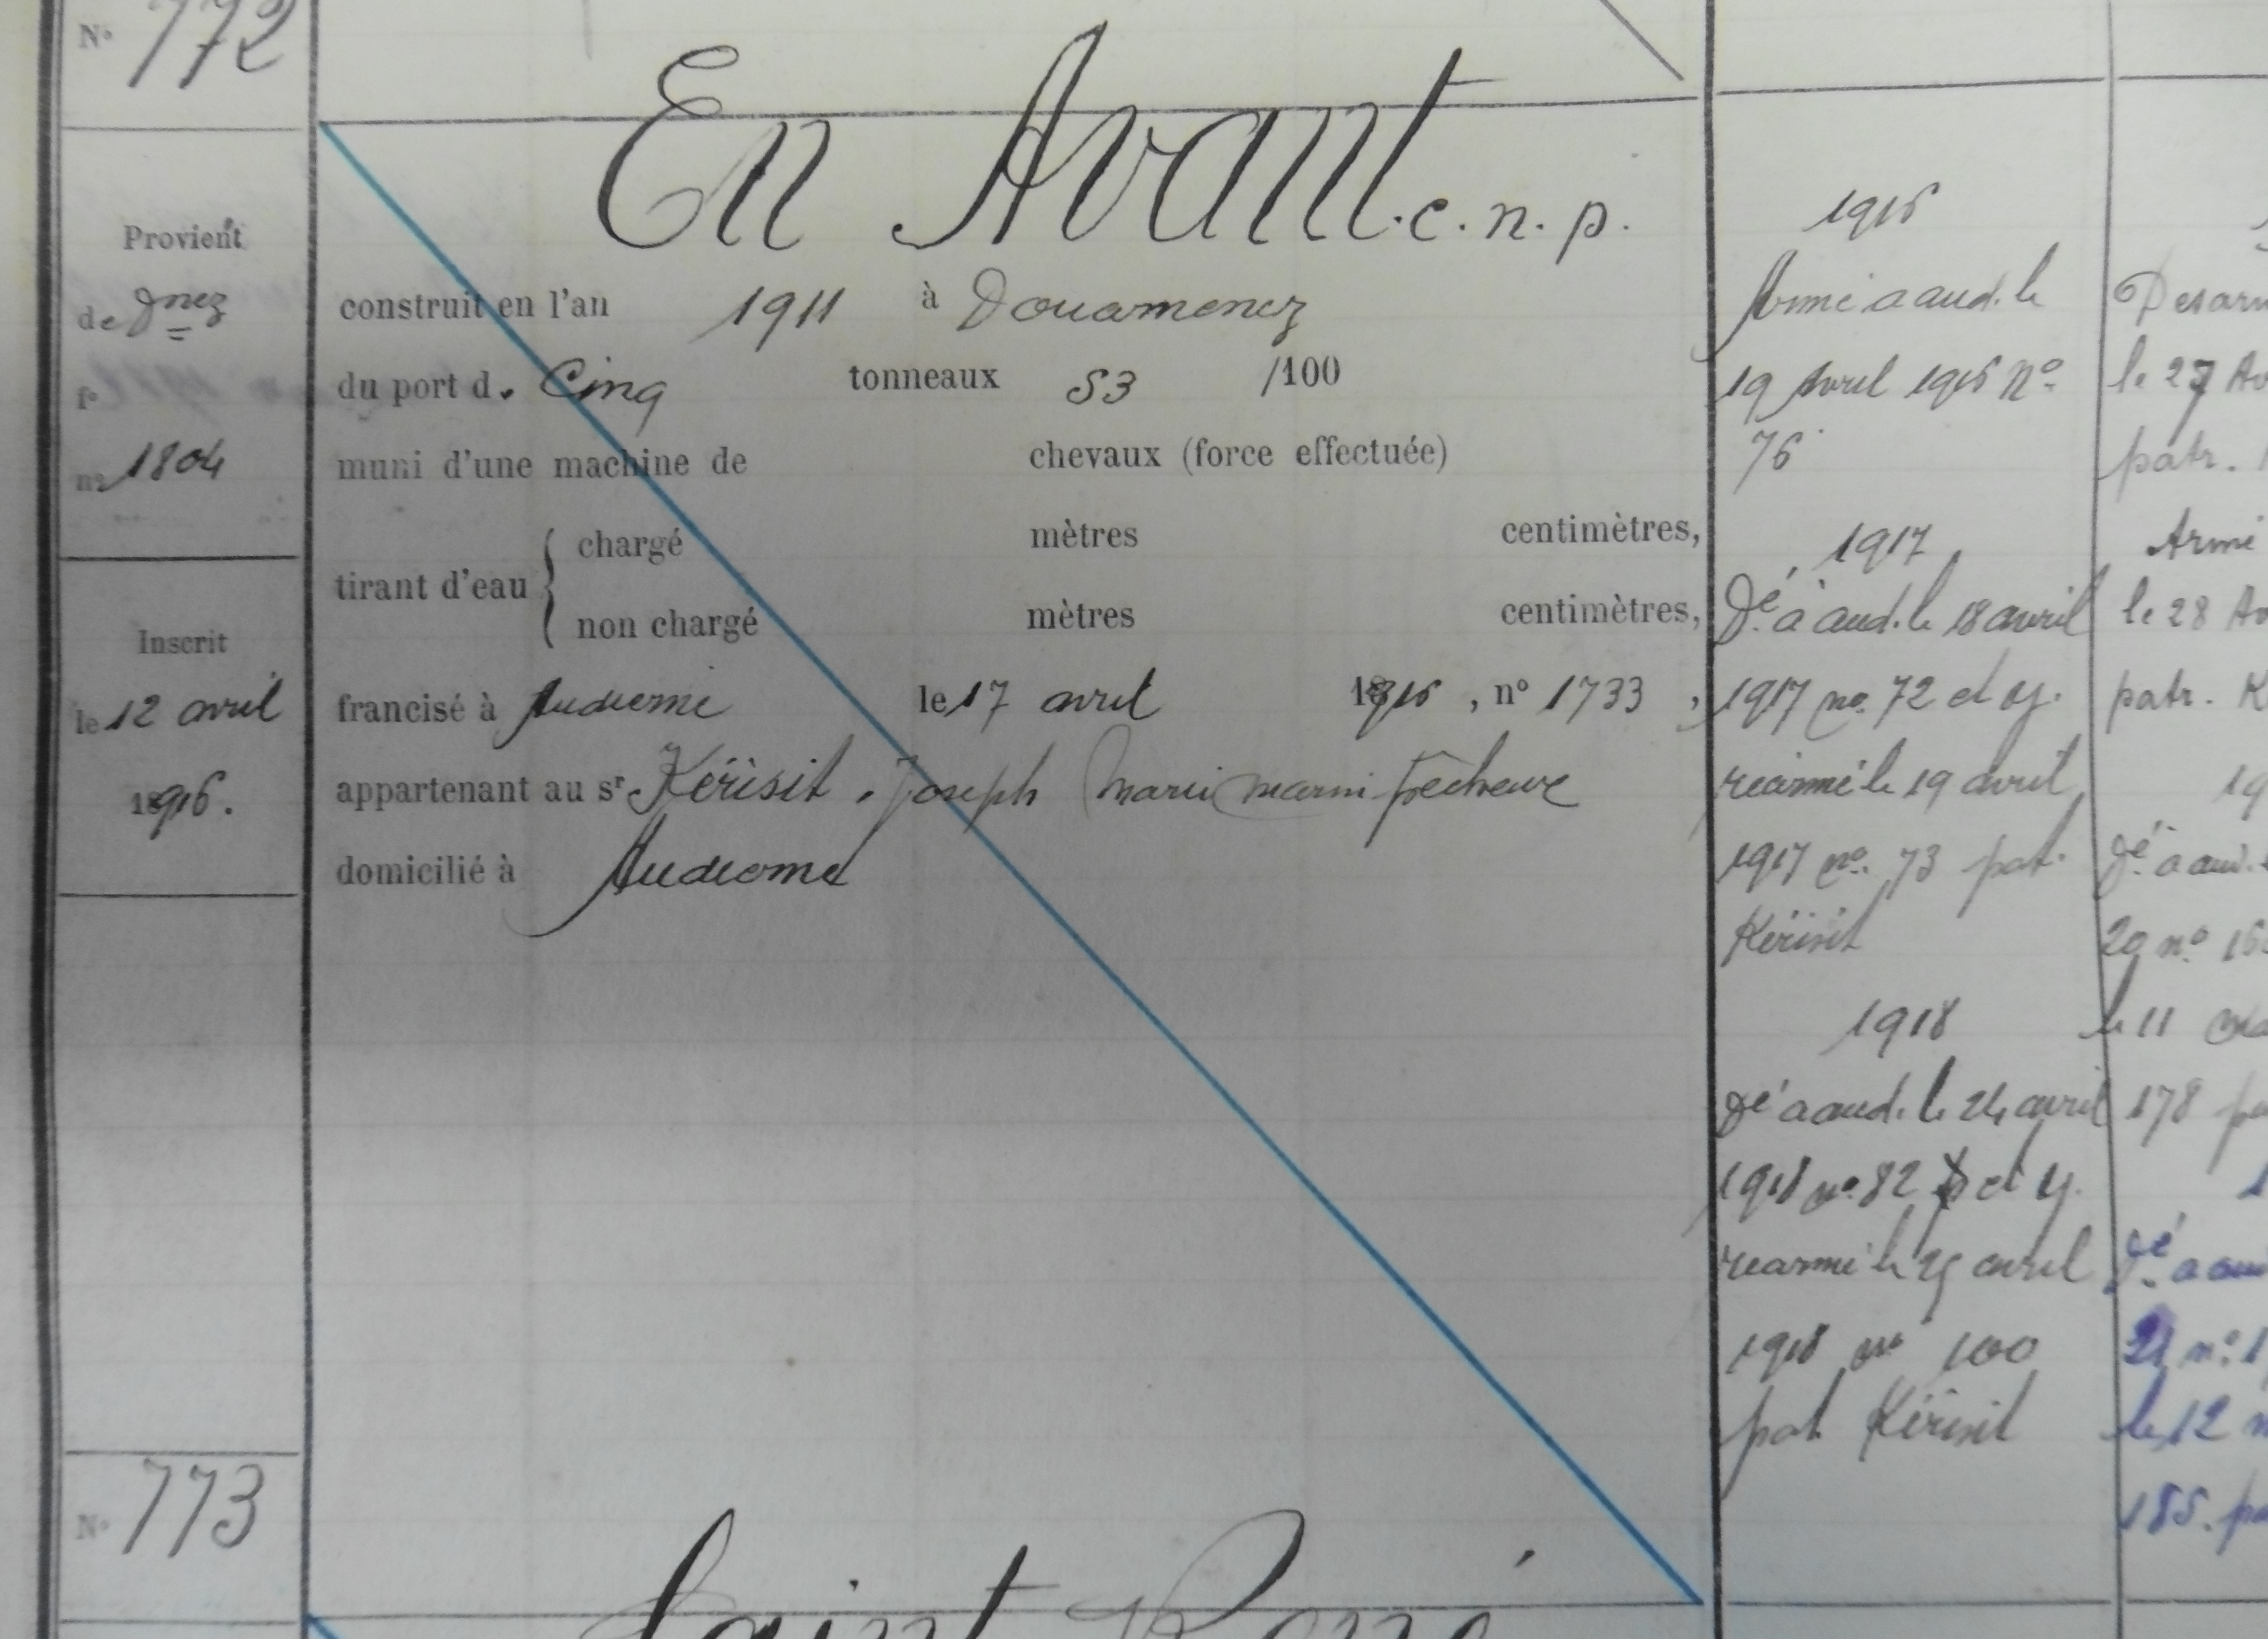 No 772
En Avant. c. n. p.
Provient
de Dnez
fo
no 1804
Inscrit
le 12 avril
1916.
construit en l'an 1911 à Douarnenez
du port d. Cinq tonneaux 53 /100
muni d'une machine de chevaux (force effectuée)
tirant d'eau { chargé mètres centimètres,
non chargé mètres centimètres,
francisé à Audierne le 17 avril 1916, no 1733,
appartenant au sr Kérisit. Joseph Marie marin pêcheur
domicilié à Audierne
1916
Armé a aud. le
19 Avril 1916 No
76
1917
Dé à aud. le 18 avril
1917 no 72 et y.
réarmé le 19 avril
1917 no 73 pat.
Kérisit
1918
Dé a aud. le 24 avril
1918 no 82 et y.
réarmé le 25 avril
1918 no 100
pat Kérisit
Desarm
le 27 Av
patr.
Armé
le 28 Av
patr. K
19
Dé à aud.
20 no 16
le 11
178 p
1
Dé a au
21 no 1
le 12 m
185. pa
No 773
Saint René